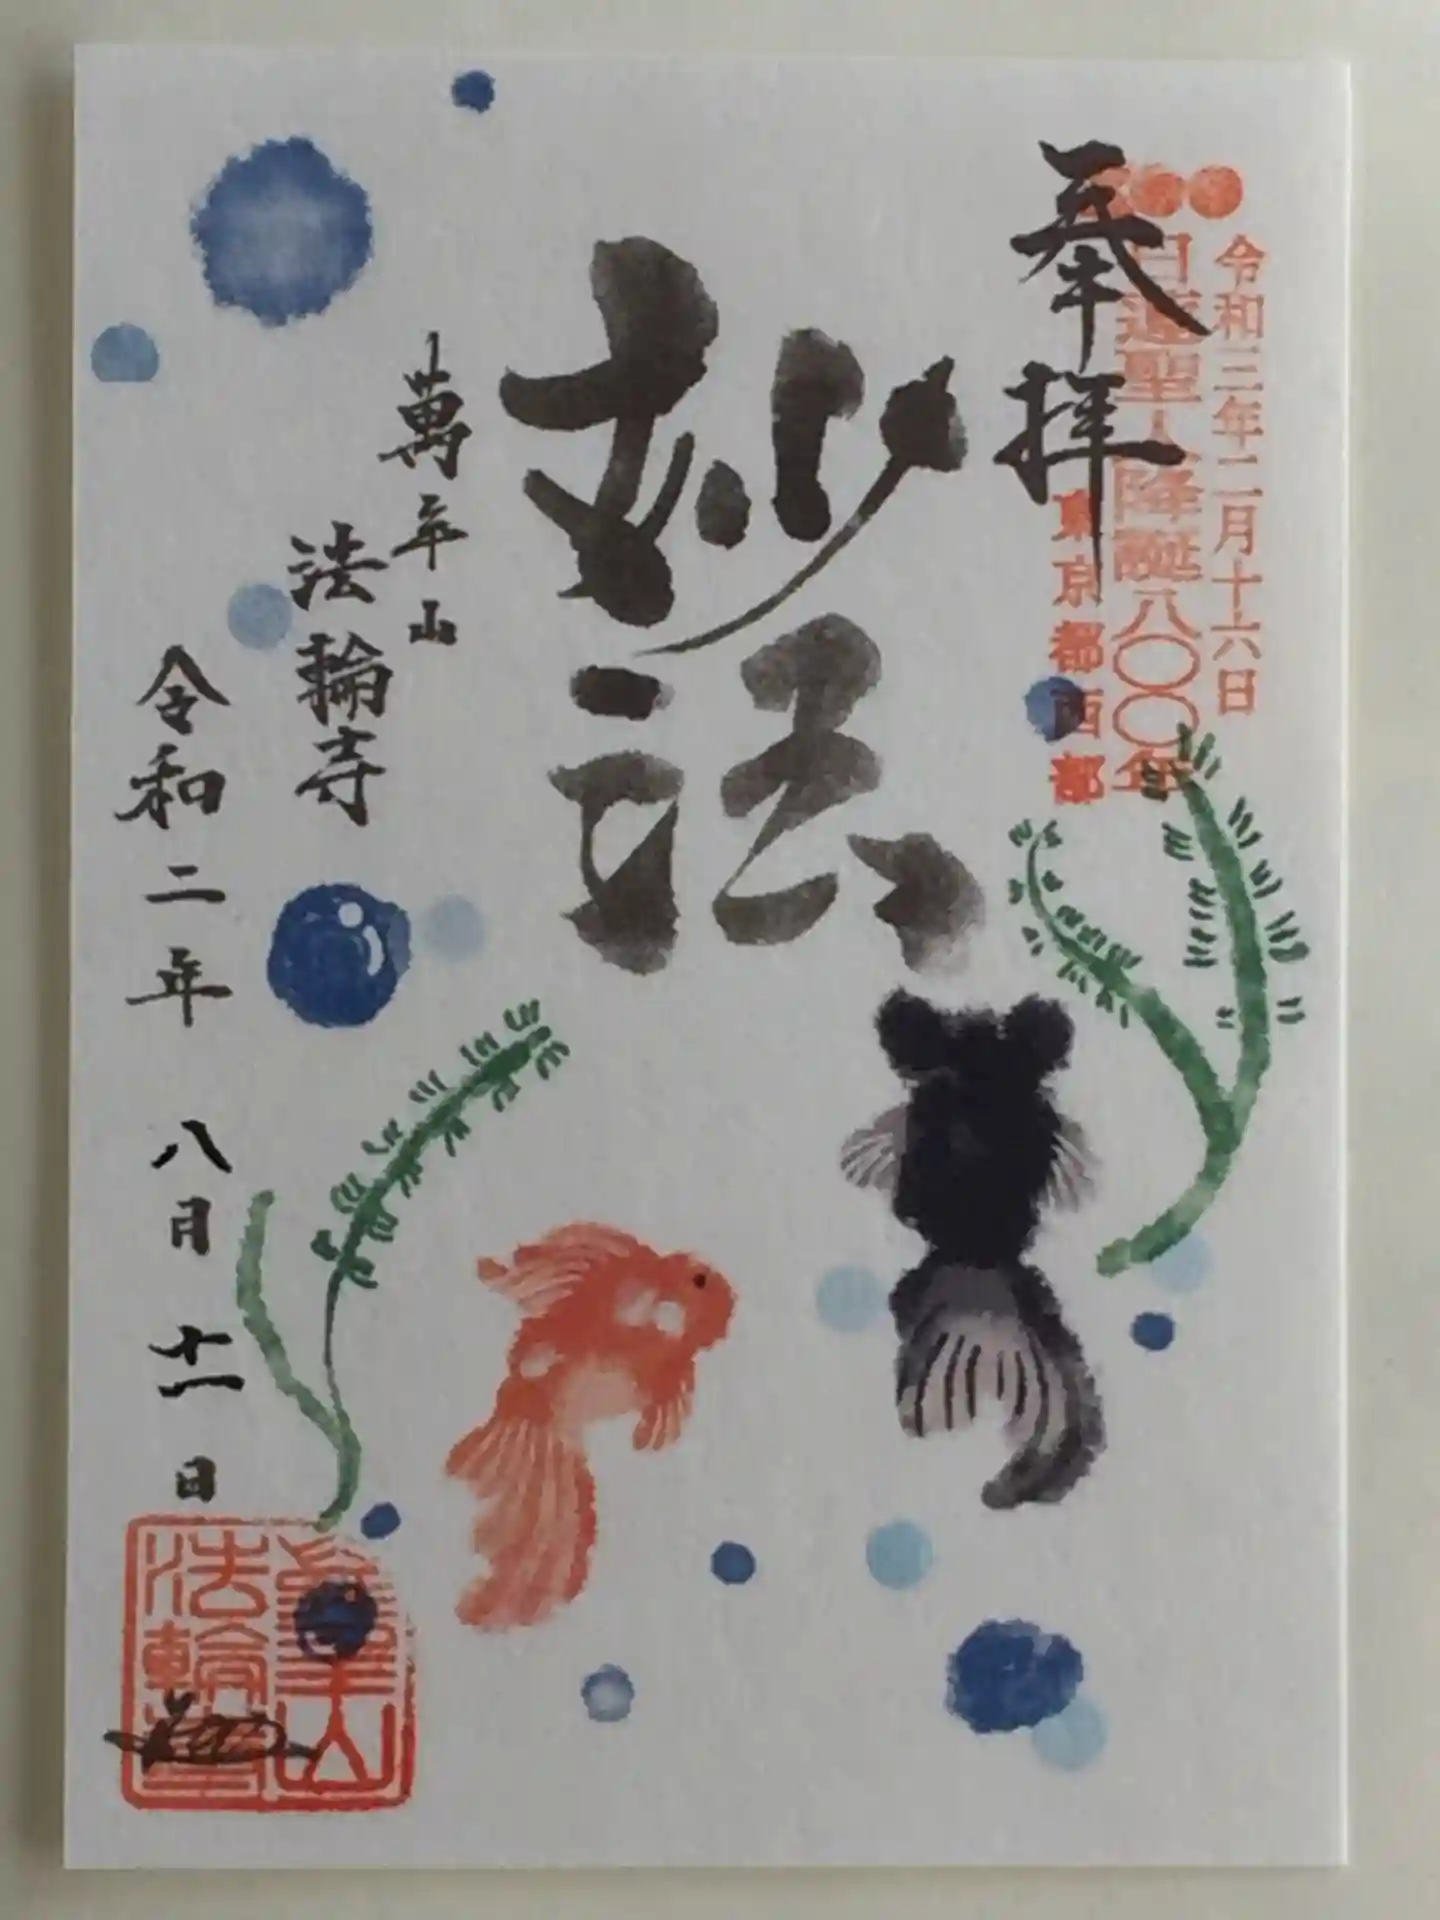 奉拝
令和三年二月十六日
日蓮聖人降誕八〇〇年
東京都西部
妙法
萬年山
法輪寺
令和二年 八月 十一日
萬年山
法輪寺